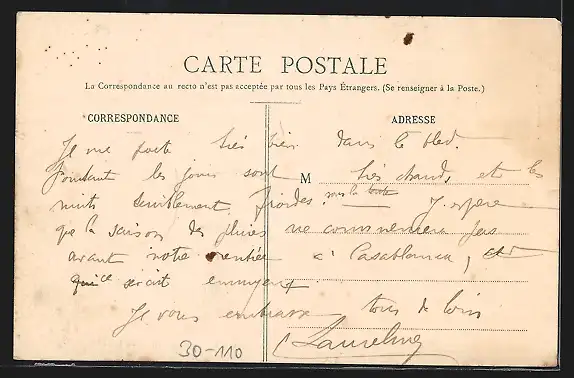 CARTE POSTALE
La Correspondance au recto n'est pas acceptée par tous les Pays Étrangers. (Se renseigner à la Poste.)
CORRESPONDANCE
ADRESSE
M
Je me porte très bien dans le bled.
Pourtant les jours sont très chauds, et les
nuits froides, sous la tente J'espère
que la saison des pluies ne commencera pas
avant notre rentrée à Casablanca,
ce serait ennuyeux.
Je vous embrasse tous de loin
30-110